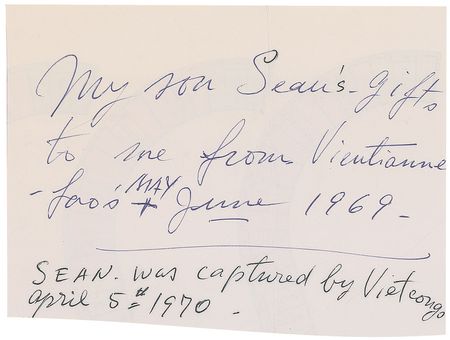 My son Sean's - gifts
to me from Vientianne
- Lao's MAY + June 1969 -
SEAN. was captured by Vietcongs
april 5th 1970 .